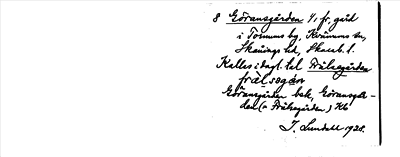 8 Göransgården 1/1 fr. gård
i Tomums by, Kvänums sn,
Skånings hd, Skarab. l.
Kallas i dagl. tal Frälsegården
frälsegån
Göransgården bek., Göransgår-
den (= Frälsegården) Kb
I. Lundahl 1928.